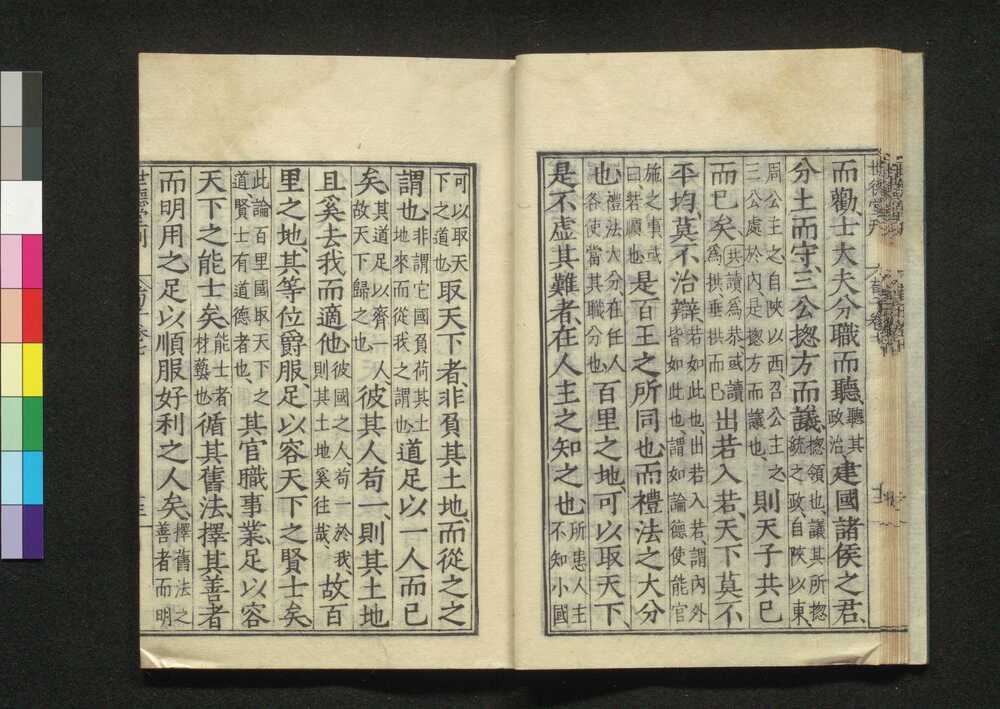 而勸、士大夫分職而聽、聽其政治、建國諸侯之君、
分土而守、三公揔方而議、揔領也、議其所揔統之政、自陝以東、
周公主之自陝以西、召公主之三公處於內是揔方而議也、則天子共已
而已矣、共讀爲恭或讀爲拱垂拱而已出若入若、天下莫不
平均、莫不治辯、若如此也、出若入若、謂內外皆如此也、謂如論德使能官
施之事、或曰、若順也、是百王之所同也、而禮法之大分
也、禮法大分在任人各使當其職分也、百里之地、可以取天下、
是不虛其難者、在人主之知之也、所患人主不知小國
可以取天下之道也取天下者、非負其土地、而從之之
謂也、非謂它國負荷其土地來而從我之謂也、道足以一人而已
矣、其道足以齊一人、故天下歸之也、彼其人苟一、則其土地
且奚去我而適他、彼國之人苟一於我則其土地奚往哉、故百
里之地、其等位爵服、足以容天下之賢士矣、
此論百里國取天下之道、賢士有道德者也、其官職事業、足以容
天下之能士矣、能士者材藝也、循其舊法、擇其善者
而明用之、足以順服好利之人矣、擇舊法之善者而明